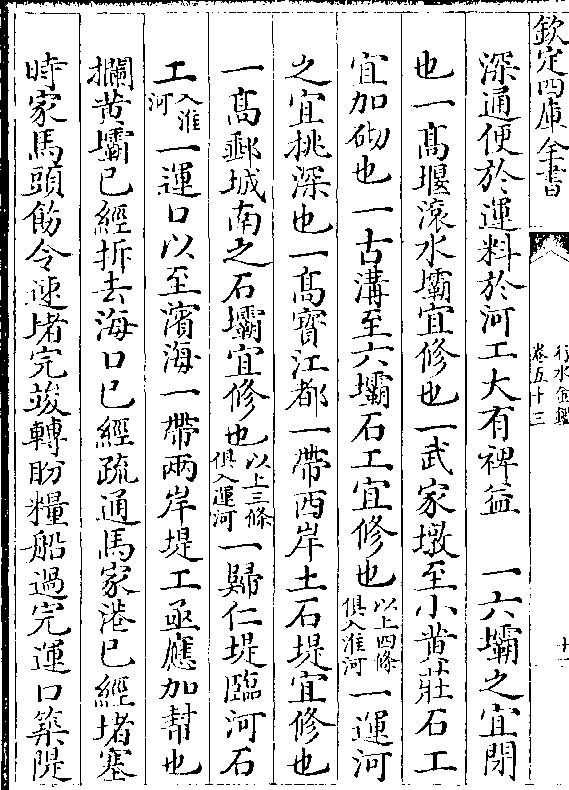 欽定四庫全書
行水金鑑
卷五十三
十一
深通便於運料於河工大有裨益　一六壩之宜閉
也一髙堰滚水壩宜修也一武家墩至小黄莊石工
宜加砌也一古溝至六壩石工宜修也以上四條俱入淮河一運河
之宜挑深也一髙寳江都一帶西岸土石堤宜修也
一髙郵城南之石壩宜修也以上三條俱入運河一歸仁堤臨河石
工入淮河一運口以至濱海一帶兩岸堤工亟應加幇也
攔黄壩已經拆去海口已經疏通馬家港已經堵塞
時家馬頭飭令速堵完竣轉盼糧船過完運口築隄